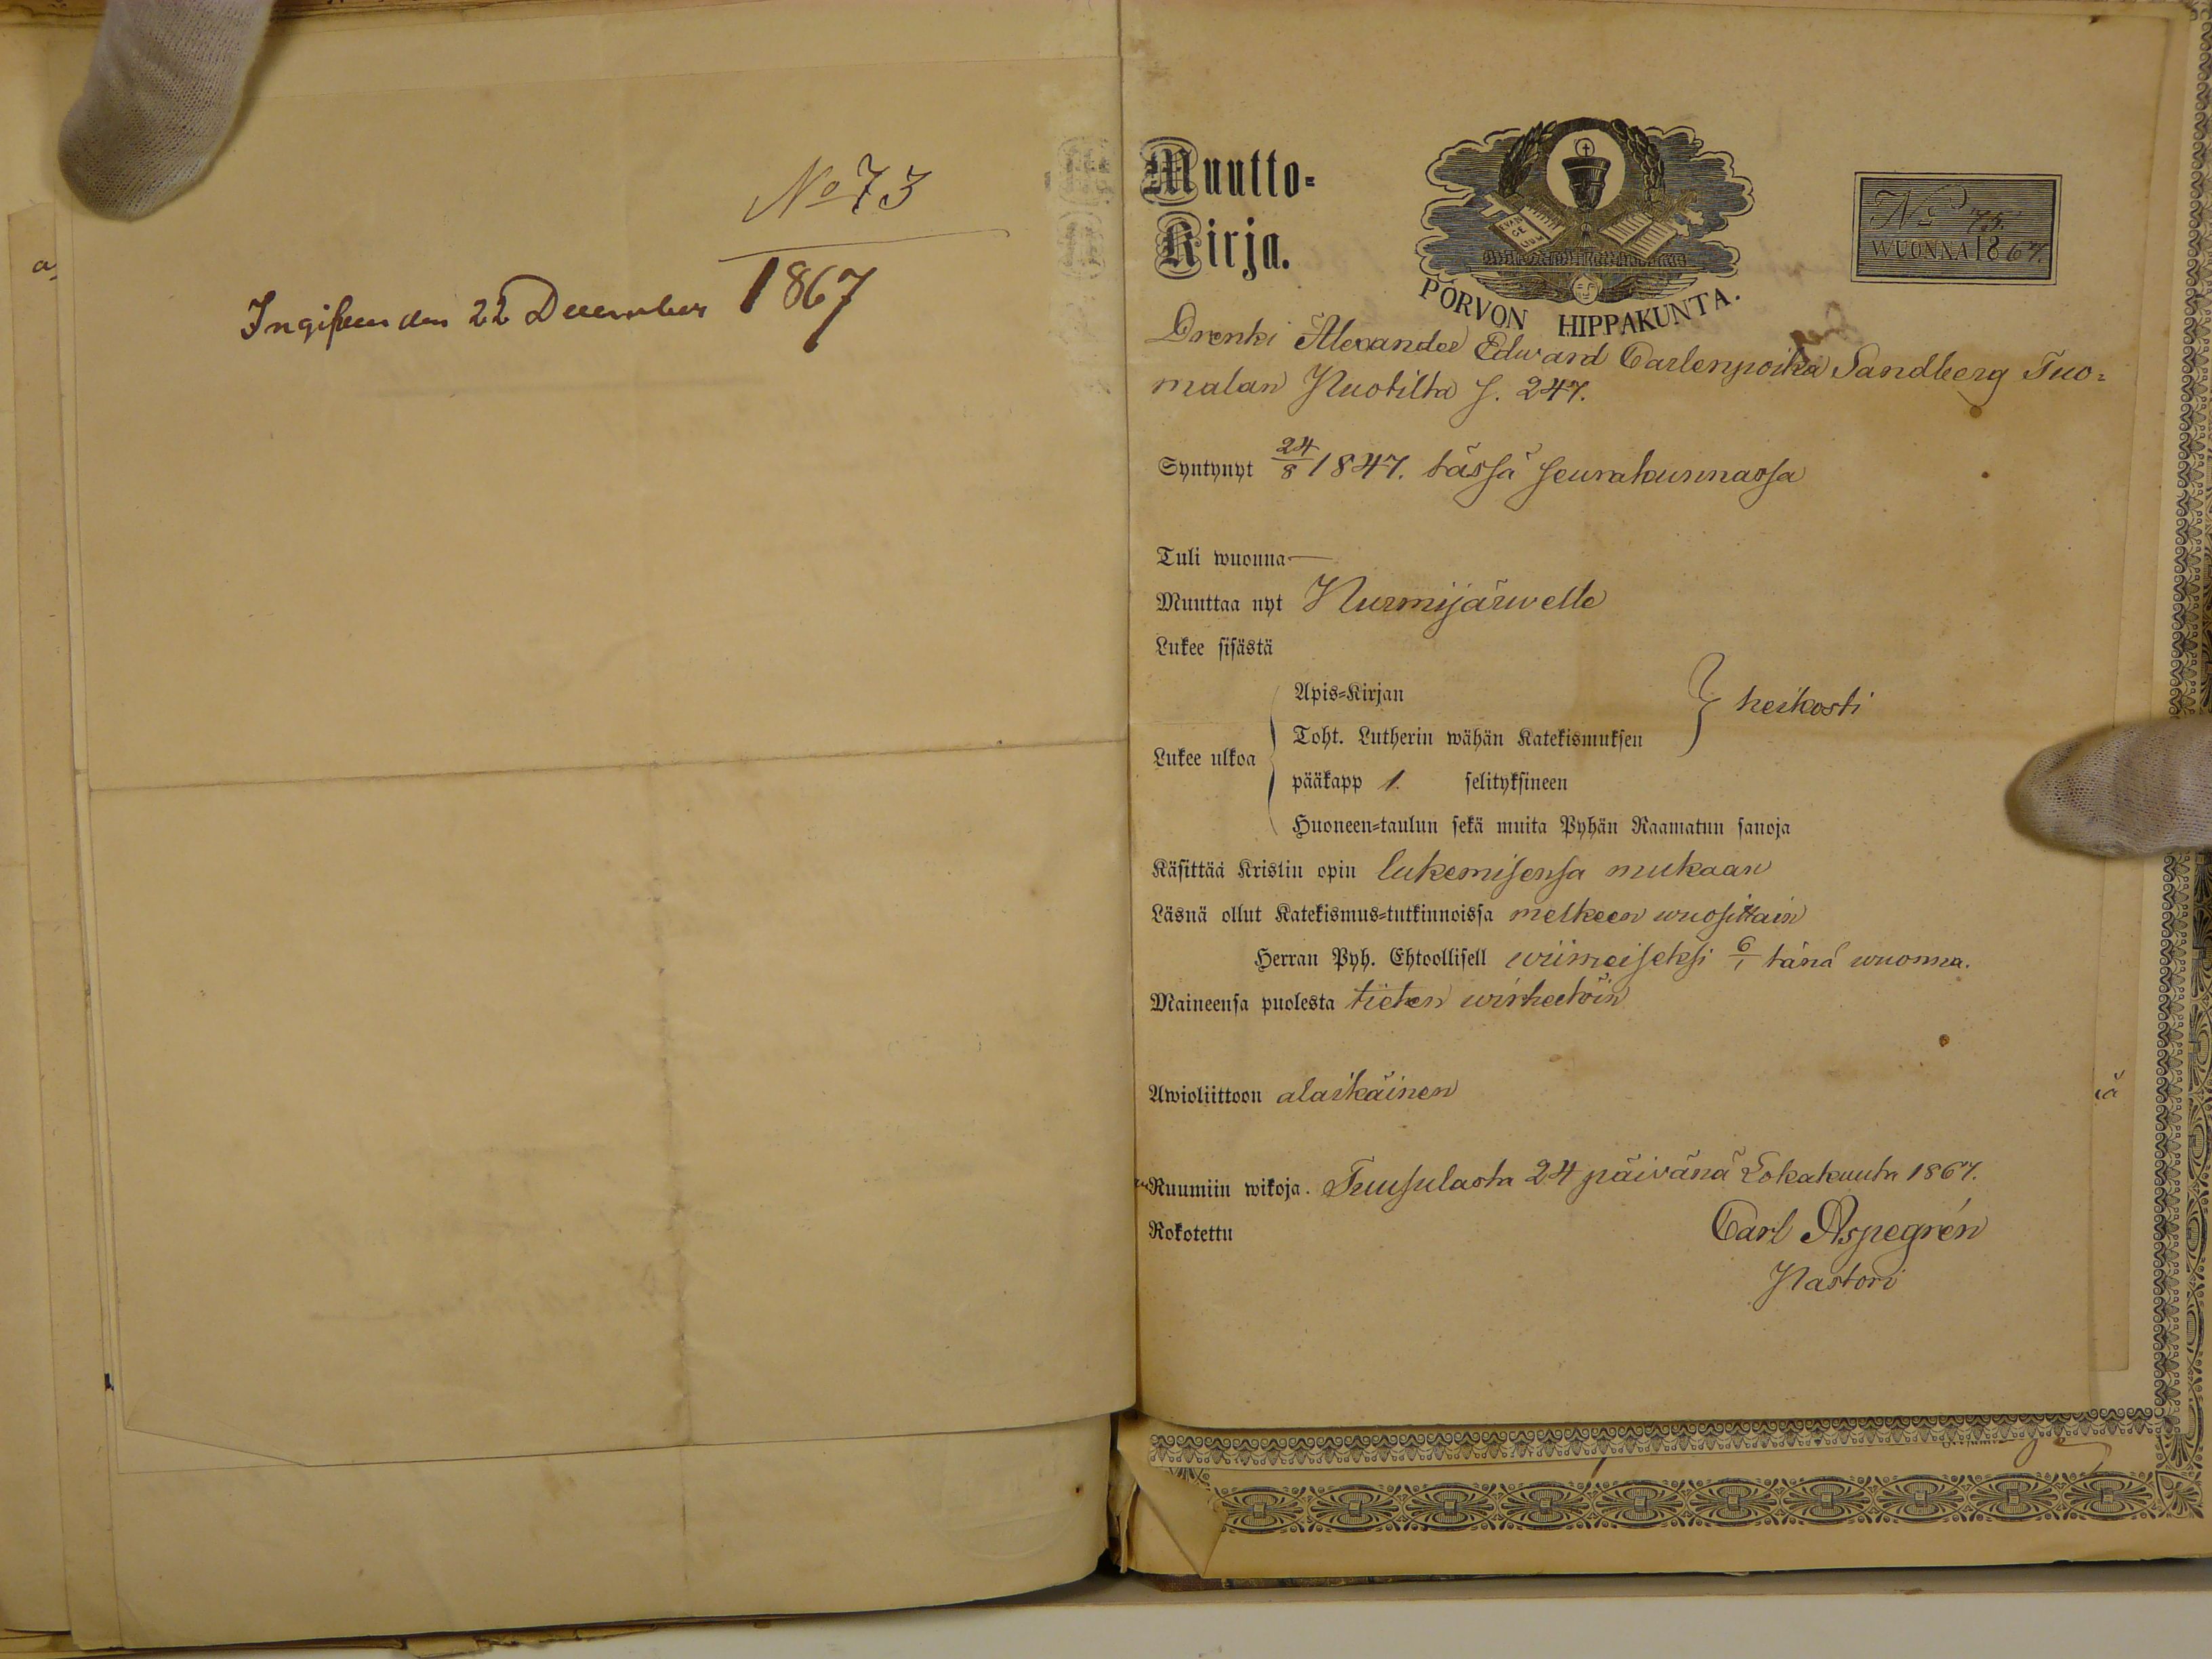 No 73
1867
Ingifven den 22 December
Muutto-
Kirja.
EVAN
GE
LIUM
PORVON HIPPAKUNTA.
No 75.
WUONNA 1867.
Drenki Alexander Edward Carlenpoika Sandberg Tuo=
malan Nuotilta s. 247.
Syntynyt 24/8 1847. tässä seurakunnassa
Tuli wuonna —
Muuttaa nyt Nurmijärwelle
Lukee sisästä
Apis=Kirjan
heikosti
Toht. Lutherin wähän Katekismuksen
Lukee ulkoa
pääkapp 1. selityksineen
Huoneen=taulun sekä muita Pyhän Raamatun sanoja
Käsittää Kristin opin lukemisensa mukaan
Läsnä ollut Katekismus=tutkinnoissa melkeen wuosittain
Herran Pyh. Ehtoollisell wiimeiseksi 6/1 tänä wuonna.
Maineensa puolesta tieten wirheetöin
Awioliittoon alaikäinen
Ruumiin wikoja. Tuusulasta 24 päivänä Lokakuuta 1867.
Rokotettu
Carl Aspegrén
Pastori